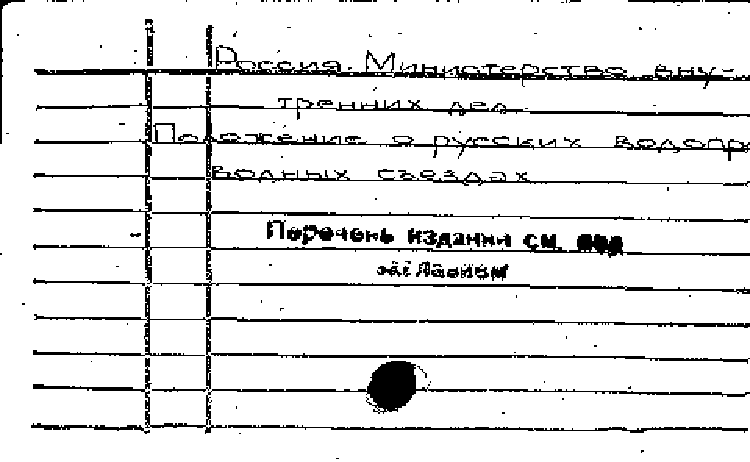 Россия. Министерство вну-
тренних дел
Положение о русских водопро
водных съездах
Перечень издании см. под
заглавием